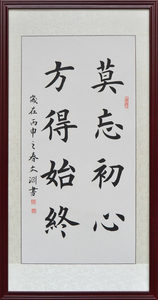 莫忘初心
方得始終
歲在丙申之春文湖書